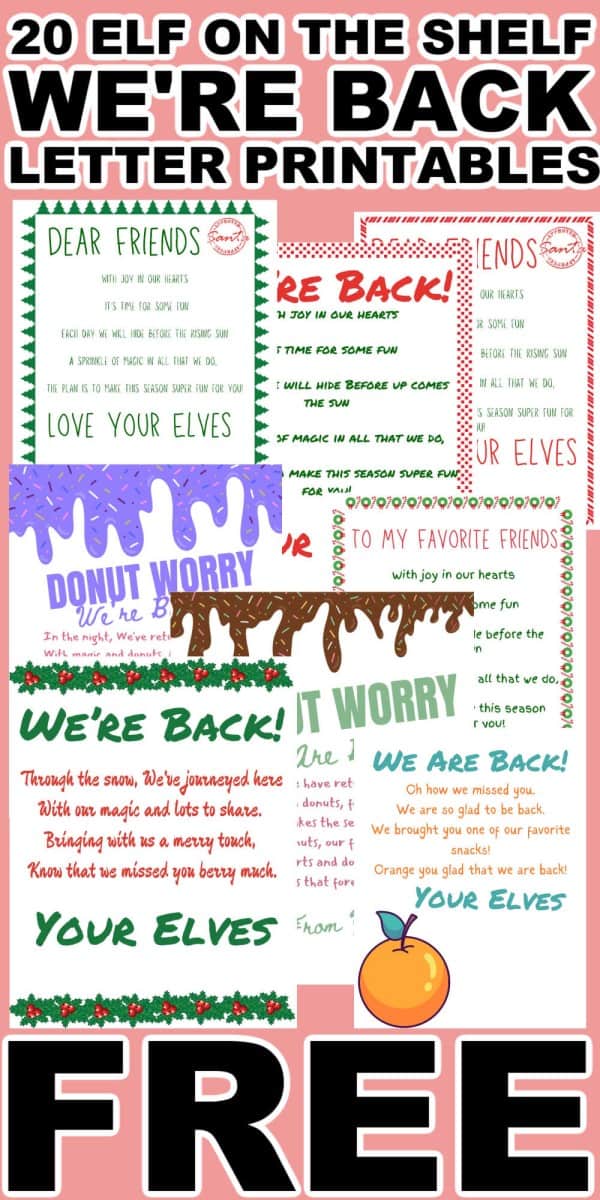 20 ELF ON THE SHELF
WE'RE BACK
LETTER PRINTABLES
DEAR FRIENDS
Santa
WITH JOY IN OUR HEARTS
IT'S TIME FOR SOME FUN
EACH DAY WE WILL HIDE BEFORE THE RISING SUN
A SPRINKLE OF MAGIC IN ALL THAT WE DO,
THE PLAN IS TO MAKE THIS SEASON SUPER FUN FOR YOU!
LOVE YOUR ELVES
BACK!
JOY IN OUR HEARTS
TIME FOR SOME FUN
WILL HIDE BEFORE UP COMES
THE SUN
OF MAGIC IN ALL THAT WE DO,
MAKE THIS SEASON SUPER FUN
FOR YOU!
Santa
OUR HEARTS
SOME FUN
BEFORE THE RISING SUN
IN ALL THAT WE DO,
SEASON SUPER FUN FOR
ELVES
DONUT WORRY
We're
In the night, We've
With magic and donuts,
TO MY FAVORITE FRIENDS
with joy in our hearts
some fun
before the
all that we do,
this season
you!
WORRY
Are
have
donuts,
the
our
and
that
From
We're Back!
Through the snow, We've journeyed here
With our magic and lots to share.
Bringing with us a merry touch,
Know that we missed you berry much.
Your Elves
We Are Back!
Oh how we missed you.
We are so glad to be back.
We brought you one of our favorite
snacks!
Orange you glad that we are back!
Your Elves
FREE